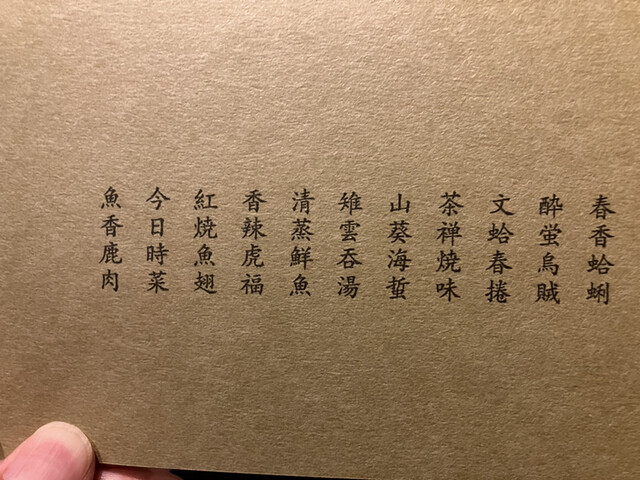 春香蛤蜊
酔蛍烏賊
文蛤春捲
茶禅焼味
山葵海蜇
雉雲呑湯
清蒸鮮魚
香辣虎福
紅焼魚翅
今日時菜
魚香鹿肉